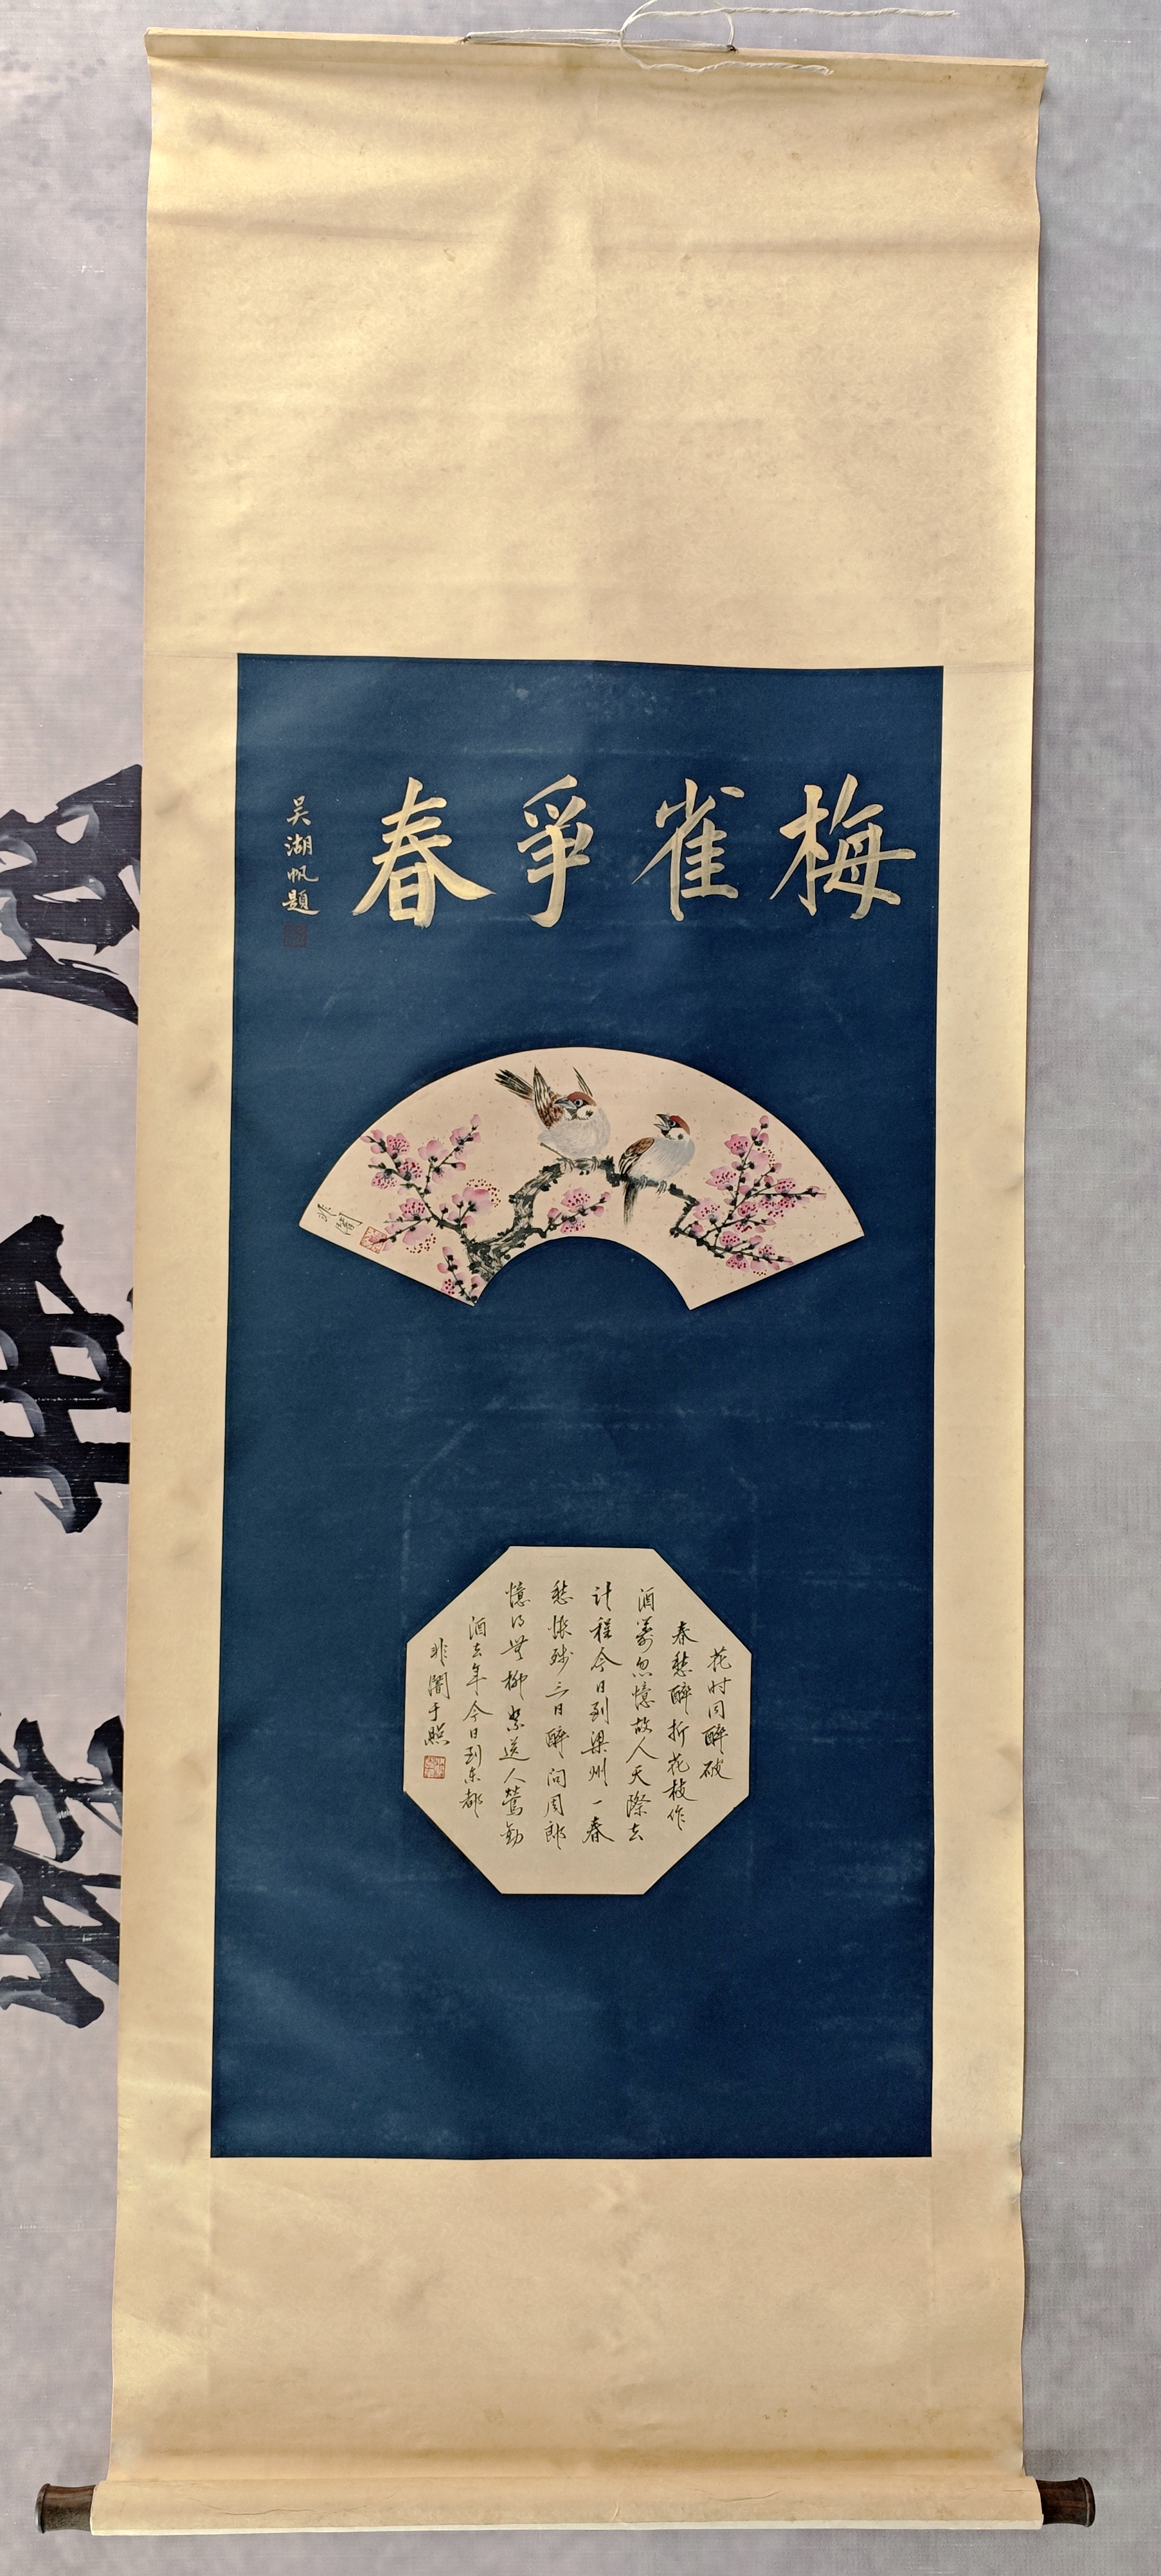 梅雀爭春
吴湖帆題
非闇
花时同醉破
春愁醉折花枝作
酒筹忽憶故人天際去
计程今日到梁州一春
愁悵残三日醉问周郎
憶得無柳絮送人鶯勸
酒去年今日到东都
非闇于照